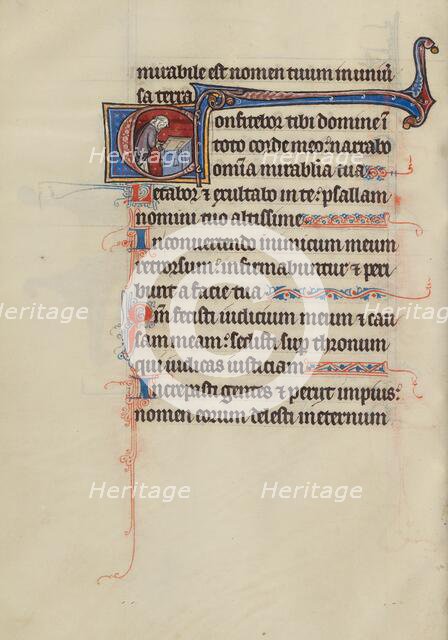 mirabile est nomen tuum in uniu
sa terra
Confitebor tibi domine ī
toto corde meo: narrabo
omīa mirabilia tua
Letabor & exultabo in te: psallam
nomini tuo altissime
In convertendo inimicum meum
retrorsum: infirmabuntur & peri
bunt a facie tua
Qm̄ fecisti iudicium meum & cau
sam meam: sedisti sup thronum
qui iudicas iusticiam
Increpasti gentes & periit impius:
nomen eorum delesti in eternum
Heritage Heritage
Heritage Heritage Heritage
Heritage Heritage